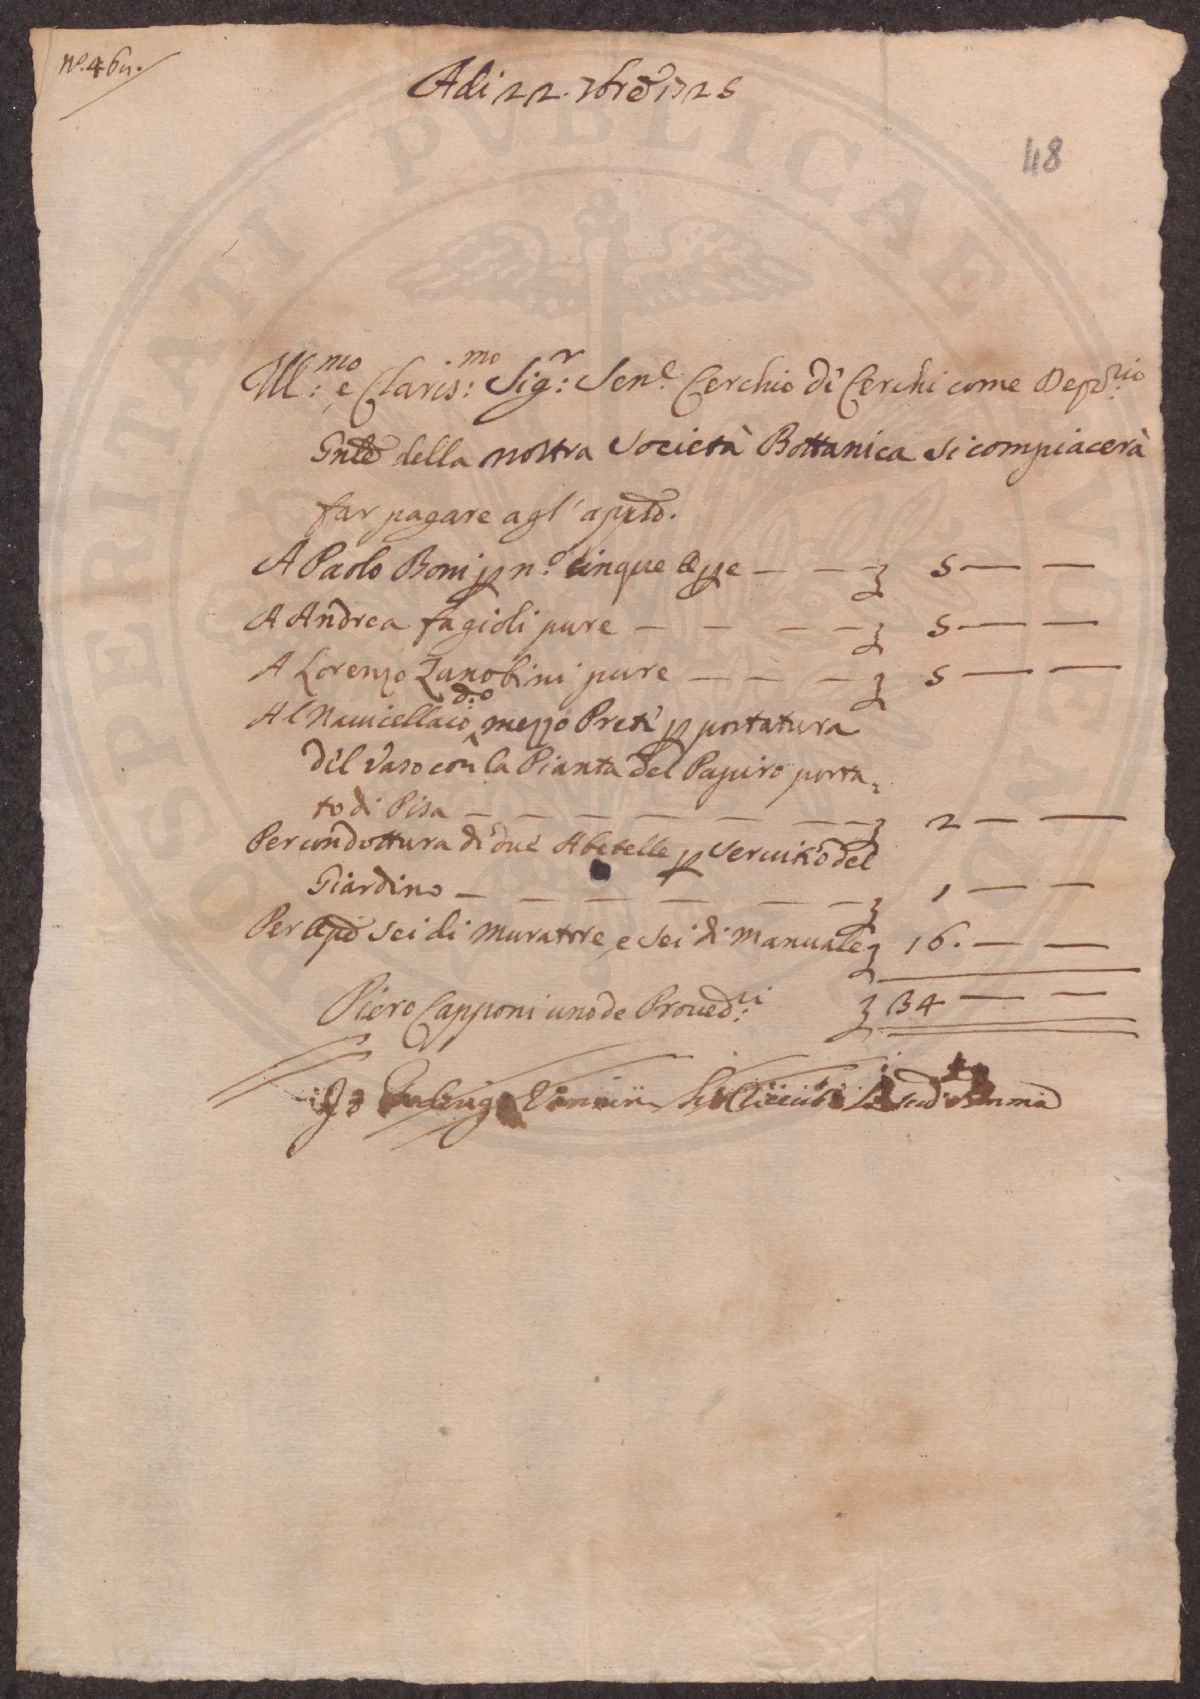 N.º 46
Adi 22. 7bre 1725
48
Ill:mo e Claris:mo Sig:r Sen.e Cerchio di Cerchi come Depo:rio
Gnle della nostra Società Bottanica si compiacerà
far pagare agl' app̄ti.
A Paolo Boni p n.º cinque Ope — — — 5 — —
A Andrea fagioli pure — — — — 5 — —
A Lorenzo Zanobini pure — — — 5 — —
Al Nauicellaio d:o mezzo Preti p portatura
del Vaso con la Pianta del Papiro porta-
to di Pisa — — — — — — — 2 — —
Per condottura di due Abetelle p seruitio del
Giardino — — — — — — 1 — —
Per Ope sei di Muratore e sei di Manuale 16. — —
Piero Capponi uno de Proued:ri 34 — —
Io